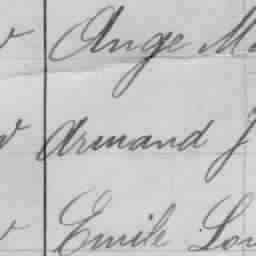 Ange M
Armand J
Emile Lou